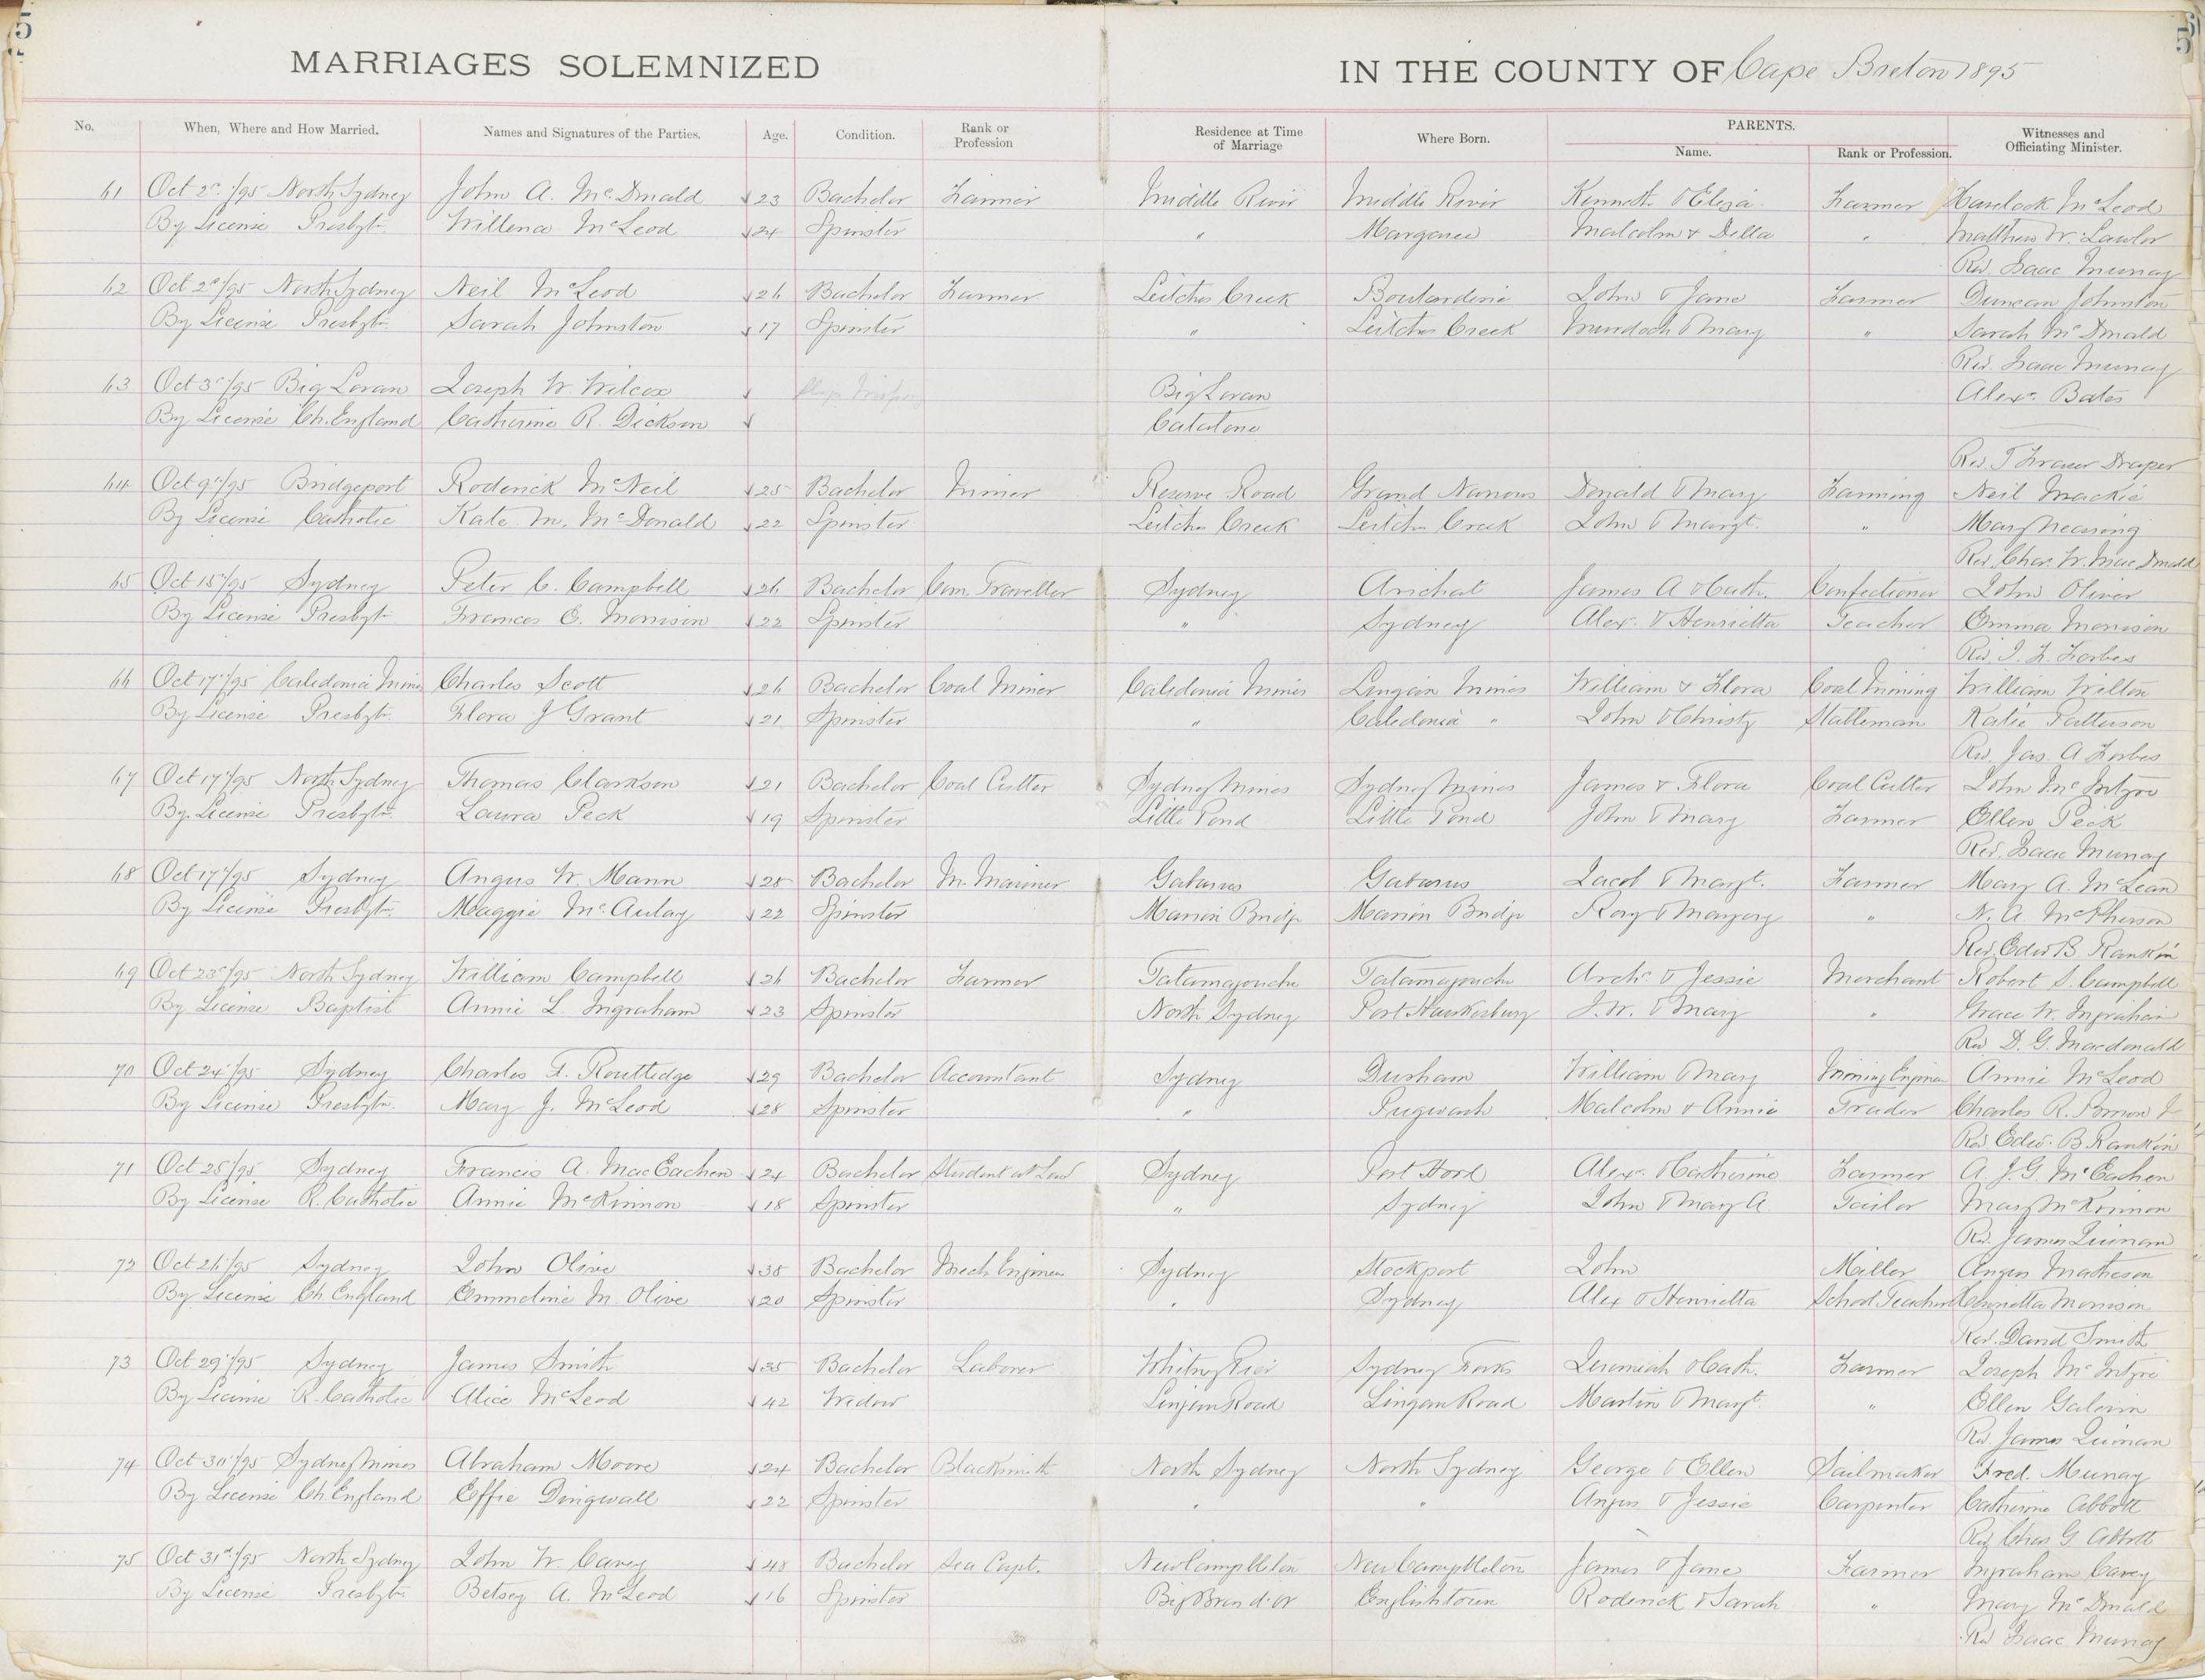 5
5
MARRIAGES SOLEMNIZED IN THE COUNTY OF Cape Breton 1895
No. When, Where and How Married. Names and Signatures of the Parties. Age. Condition. Rank or Profession Residence at Time of Marriage Where Born. PARENTS. Name. Rank or Profession. Witnesses and Officiating Minister.
61 Oct 2d/95 North Sydney John A. McDonald 23 Bachelor Farmer Middle River Middle River Kenneth & Eliza Farmer Havelock McLeod
By License Presbytn Willena McLeod 24 Spinster " Margaree Malcolm & Della " Matthew W. Lawlor
Rev. Isaac Murray
62 Oct 2d/95 North Sydney Neil McLeod 26 Bachelor Farmer Leitches Creek Boulardrie John & Jane Farmer Duncan Johnston
By License Presbytn Sarah Johnston 17 Spinster " Leitches Creek Murdoch & Mary " Sarah McDonald
Rev. Isaac Murray
63 Oct 3d/95 Big Loran Joseph W. Wilcox Big Loran Alexr. Bates
By License Ch. England Catherine R. Dickson Catalone
Rev. T Fraser Draper
64 Oct 9th/95 Bridgeport Roderick McNeil 25 Bachelor Miner Reserve Road Grand Narrows Donald & Mary Farming Neil Mackie
By License Catholic Kate M. McDonald 22 Spinster Leitches Creek Leitches Creek John & Margt. " Mary Nearing
Rev. Chas. W. MacDonald
65 Oct 15th/95 Sydney Peter C. Campbell 26 Bachelor Com. Traveller Sydney Arichat James A & Cath. Confectioner John Oliver
By License Presbytn Frances E. Morrison 22 Spinster " Sydney Alex. & Henrietta Teacher Emma Morrison
Rev. J. F. Forbes
66 Oct 17th/95 Caledonia Mines Charles Scott 26 Bachelor Coal Miner Caledonia Mines Lingan Mines William & Flora Coal Mining William Wilton
By License Presbytn Flora J Grant 21 Spinster " Caledonia " John & Christy Stableman Katie Patterson
Rev. Jas. A Forbes
67 Oct 17th/95 North Sydney Thomas Clarkson 21 Bachelor Coal Cutter Sydney Mines Sydney Mines James & Flora Coal Cutter John McIntyre
By License Presbytn Laura Peck 19 Spinster Little Pond Little Pond John & Mary Farmer Ellen Peck
Rev. Isaac Murray
68 Oct 17th/95 Sydney Angus W. Mann 25 Bachelor M. Mariner Gabarus Gabarus Jacob & Margt. Farmer Mary A. McLean
By License Presbytn Maggie McAulay 22 Spinster Marion Bridge Marion Bridge Rory & Margery " N. A. McPherson
Rev. Edw B. Rankin
69 Oct 23d/95 North Sydney William Campbell 26 Bachelor Farmer Tatamagouche Tatamagouche Archd. & Jessie Merchant Robert S. Campbell
By License Baptist Annie L. Ingraham 23 Spinster North Sydney Port Hawkesbury J. W. & Mary " Grace W. Ingraham
Rev D. G. Macdonald
70 Oct 24th/95 Sydney Charles F. Routledge 29 Bachelor Accountant Sydney Durham William & Mary Mining Engineer Annie McLeod
By License Presbytn. Mary J. McLeod 28 Spinster " Pugwash Malcolm & Annie Trader Charles R.
Rev Edw. B Rankin
71 Oct 25th/95 Sydney Francis A. MacEachen 24 Bachelor Student at Law Sydney Port Hood Alex. & Catherine Farmer A. J. G. McEachen
By License R. Catholic Annie McKinnon 18 Spinster " Sydney John & Mary A. Tailor Mary McKinnon
Rev. James Quinan
72 Oct 26th/95 Sydney John Olive 38 Bachelor Mech Engineer Sydney Stockport John Miller Angus Matheson
By License Ch England Emmeline M. Olive 20 Spinster " Sydney Alex & Henrietta School Teacher Henrietta Morrison
Rev. David Smith
73 Oct 29th/95 Sydney James Smith 35 Bachelor Laborer Whitney Pier Sydney Forks Jeremiah & Cath. Farmer Joseph McIntyre
By License R. Catholic Alice McLeod 42 Widow Lingan Road Lingan Road Martin & Margt " Ellen Galvin
Rev. James Quinan
74 Oct 30th/95 Sydney Mines Abraham Moore 24 Bachelor Blacksmith North Sydney North Sydney George & Ellen Sailmaker Fred. Murray
By License Ch. England Effie Dingwall 22 Spinster " " Angus & Jessie Carpenter Catherine Abbott
Rev Chas G Abbott
75 Oct 31st/95 North Sydney John W. Carey 48 Bachelor Sea Capt. New Campbleton New Campbleton James & Jane Farmer Ingraham Carey
By License Presbytn Betsey A. McLeod 16 Spinster Big Bras d'or Englishtown Roderick & Sarah " Mary McDonald
Rev Isaac Murray